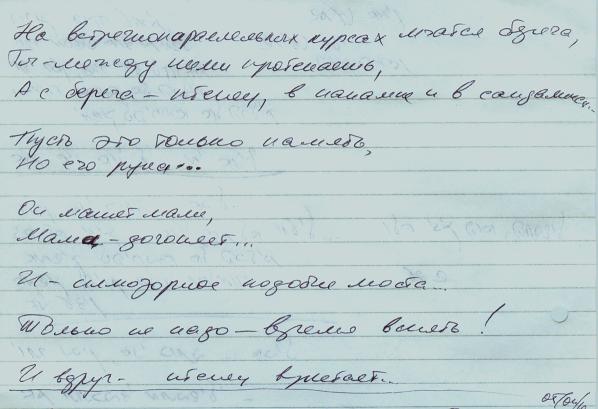 На встречнопараллельных курсах мчатся берега,
Ты – между ними протекаешь,
А с берега – птенец, в панамке и в сандалиях...
Пусть это только память,
Но его рука...
Он машет маме,
Мама – догоняет...
И – иллюзорное подобие моста...
Только не надо – время вспять!
И вдруг – птенец взлетает...